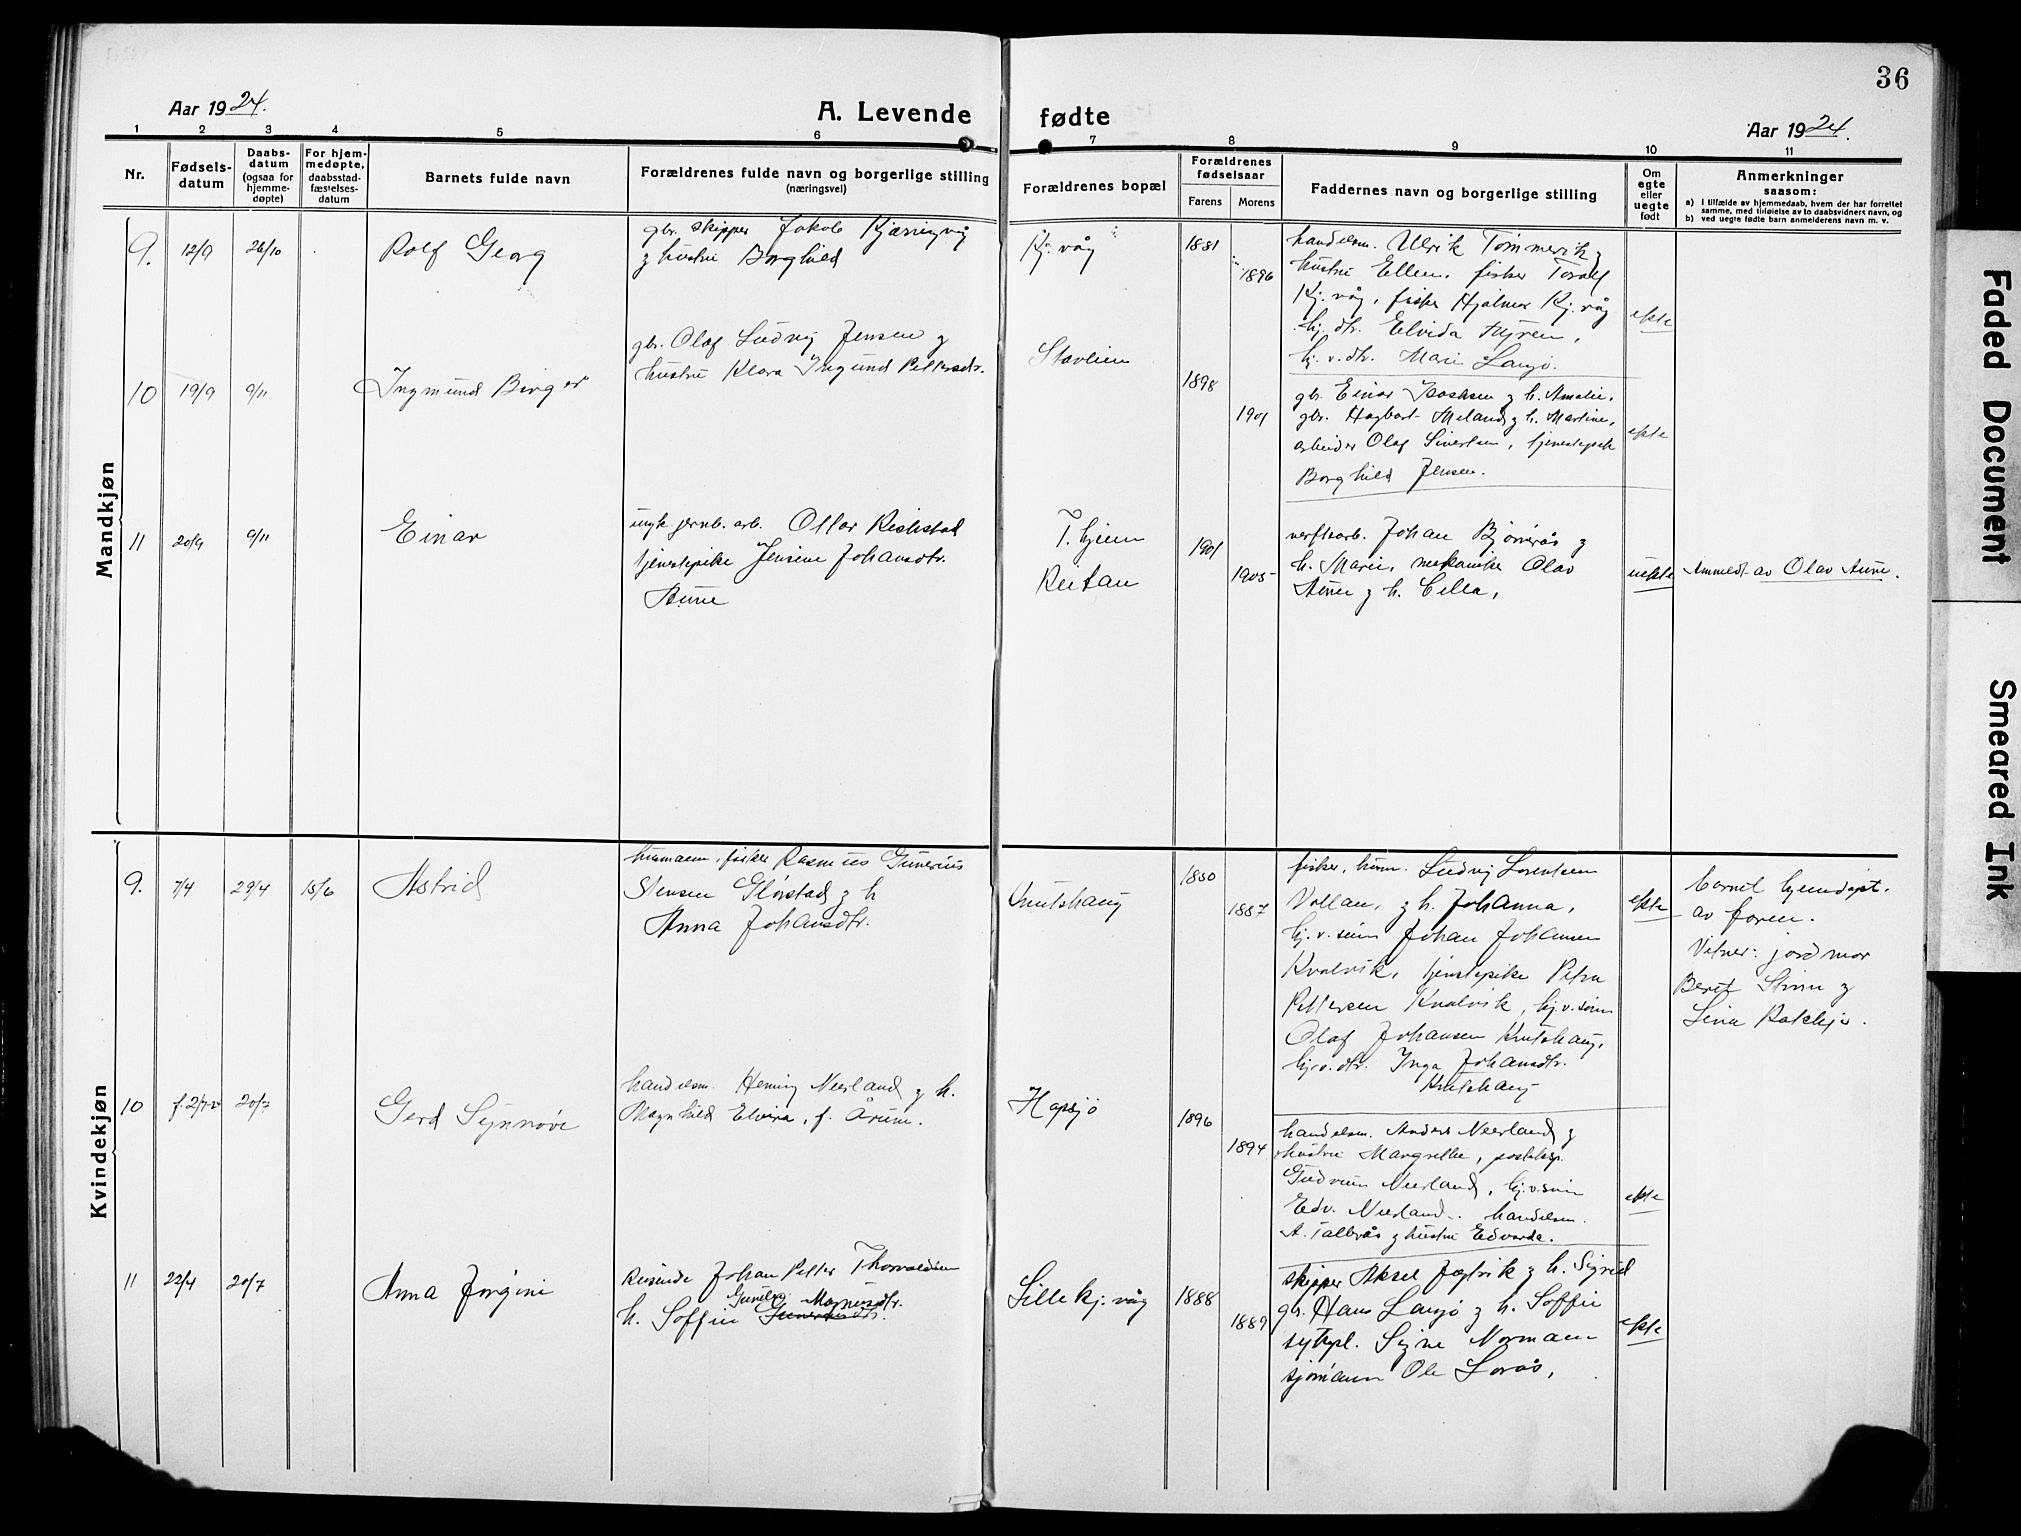 36
Aar 1924.
A. Levende fødte
Aar 1924.
1 2 3 4 5 6 7 8 9 10 11
Nr.
Fødsels-
datum
Daabs-
datum
(ogsaa for
hjemme-
døpte)
For hjem-
medøpte,
daabsstad-
fæstelses-
datum
Barnets fulde navn
Forældrenes fulde navn og borgerlige stilling
(næringsvei)
Forældrenes bopæl
Forældrenes
fødselsaar
Farens Morens
Faddernes navn og borgerlige stilling
Om
egte
eller
uegte
født
Anmerkninger
saasom:
a) I tilfælde av hjemmedaab, hvem der har forrettet
samme, med tilføielse av to daabsvidners navn, og
b) ved uegte fødte barn anmelderens navn m. v.
Mandkjøn
9. 12/9 26/10
Rolf Georg
gbr. skipper Jakob Kjøringvåg
og hustru Borghild
Kj. våg
1881
1896
handelsm. Ulrik Tømmervik og
hustru Ellen, fisker Toralf
Kj. våg, fisker Hjalmar Kj. våg
hj. dtr. Elvida Myren,
hj. v. dtr. Marie Lansjø.
ekte
10 19/9 9/11
Ingmund Birger
gbr. Olaf Ludvig Jensen og
hustru Klara Ingund Pettersdtr.
Stavlien
1898
1901
gbr. Einar Isaksen og h. Amalie,
gbr. Hagbart Meland og h. Martine,
arbeider Olaf Sivertsen, tjenestepike
Borghild Jensen.
ekte
11 20/9 9/11
Einar
ungk. jernb. arb. Ottar Reckstad
tjenestepike Jensine Johansdtr.
Aune
T. hjem
Reitan
1901
1905
verftsarb. Johan Bjørnerås og
h. Marie, mekaniker Olav
Aune og h. Cella,
uekte
Anmeldt av Olav Aune.
Kvindekjøn
9. 7/4 29/4 15/6
Astrid
husmann, fisker Rasmus Gunerius
Stensen Glørstad og h
Anna Johansdtr.
Knutshaug
1880
1887
fisker, husm. Ludvig Lorentsen
Vollan, og h. Johanna,
hj. v. sønn Johan Johansen
Kvalvik, tjenestepike Petra
Pettersen Kvalvik, hj. v. sønn
Olaf Johansen Knutshaug,
hj. v. dtr. Inga Johansdtr.
Knutshaug
ekte
barnet hjemdøpt.
av faren.
Vitner: jordmor
Berit Strøm og
Lina Rakkjø.
10 20/7
Gerd Synnøve
handelsm. Heming Neerland og h.
Magnhild Elvira, f. Årum.
Hopsjø
1896
1894
handelsm. Anders Neerland og
hustru Margrethe, posteksp.
Gudrun Neerland, hj. v. sønn
Edv. Neerland. handelsm.
A. Talbrås og hustru Edvarda.
ekte
11 22/4 20/7
Anna Jørgine
Reisende Johan Petter Thorvaldsen
h. Soffie Gunelia Magnusdtr.
Lille kj. våg
1888
1889
skipper Aksel Jægtvik og h. Sigrid
gbr. Hans Lansjø og h. Soffie
sykepl. Signe Normann
sjømann Ole Sørås,
ekte
Faded Document
Smeared Ink